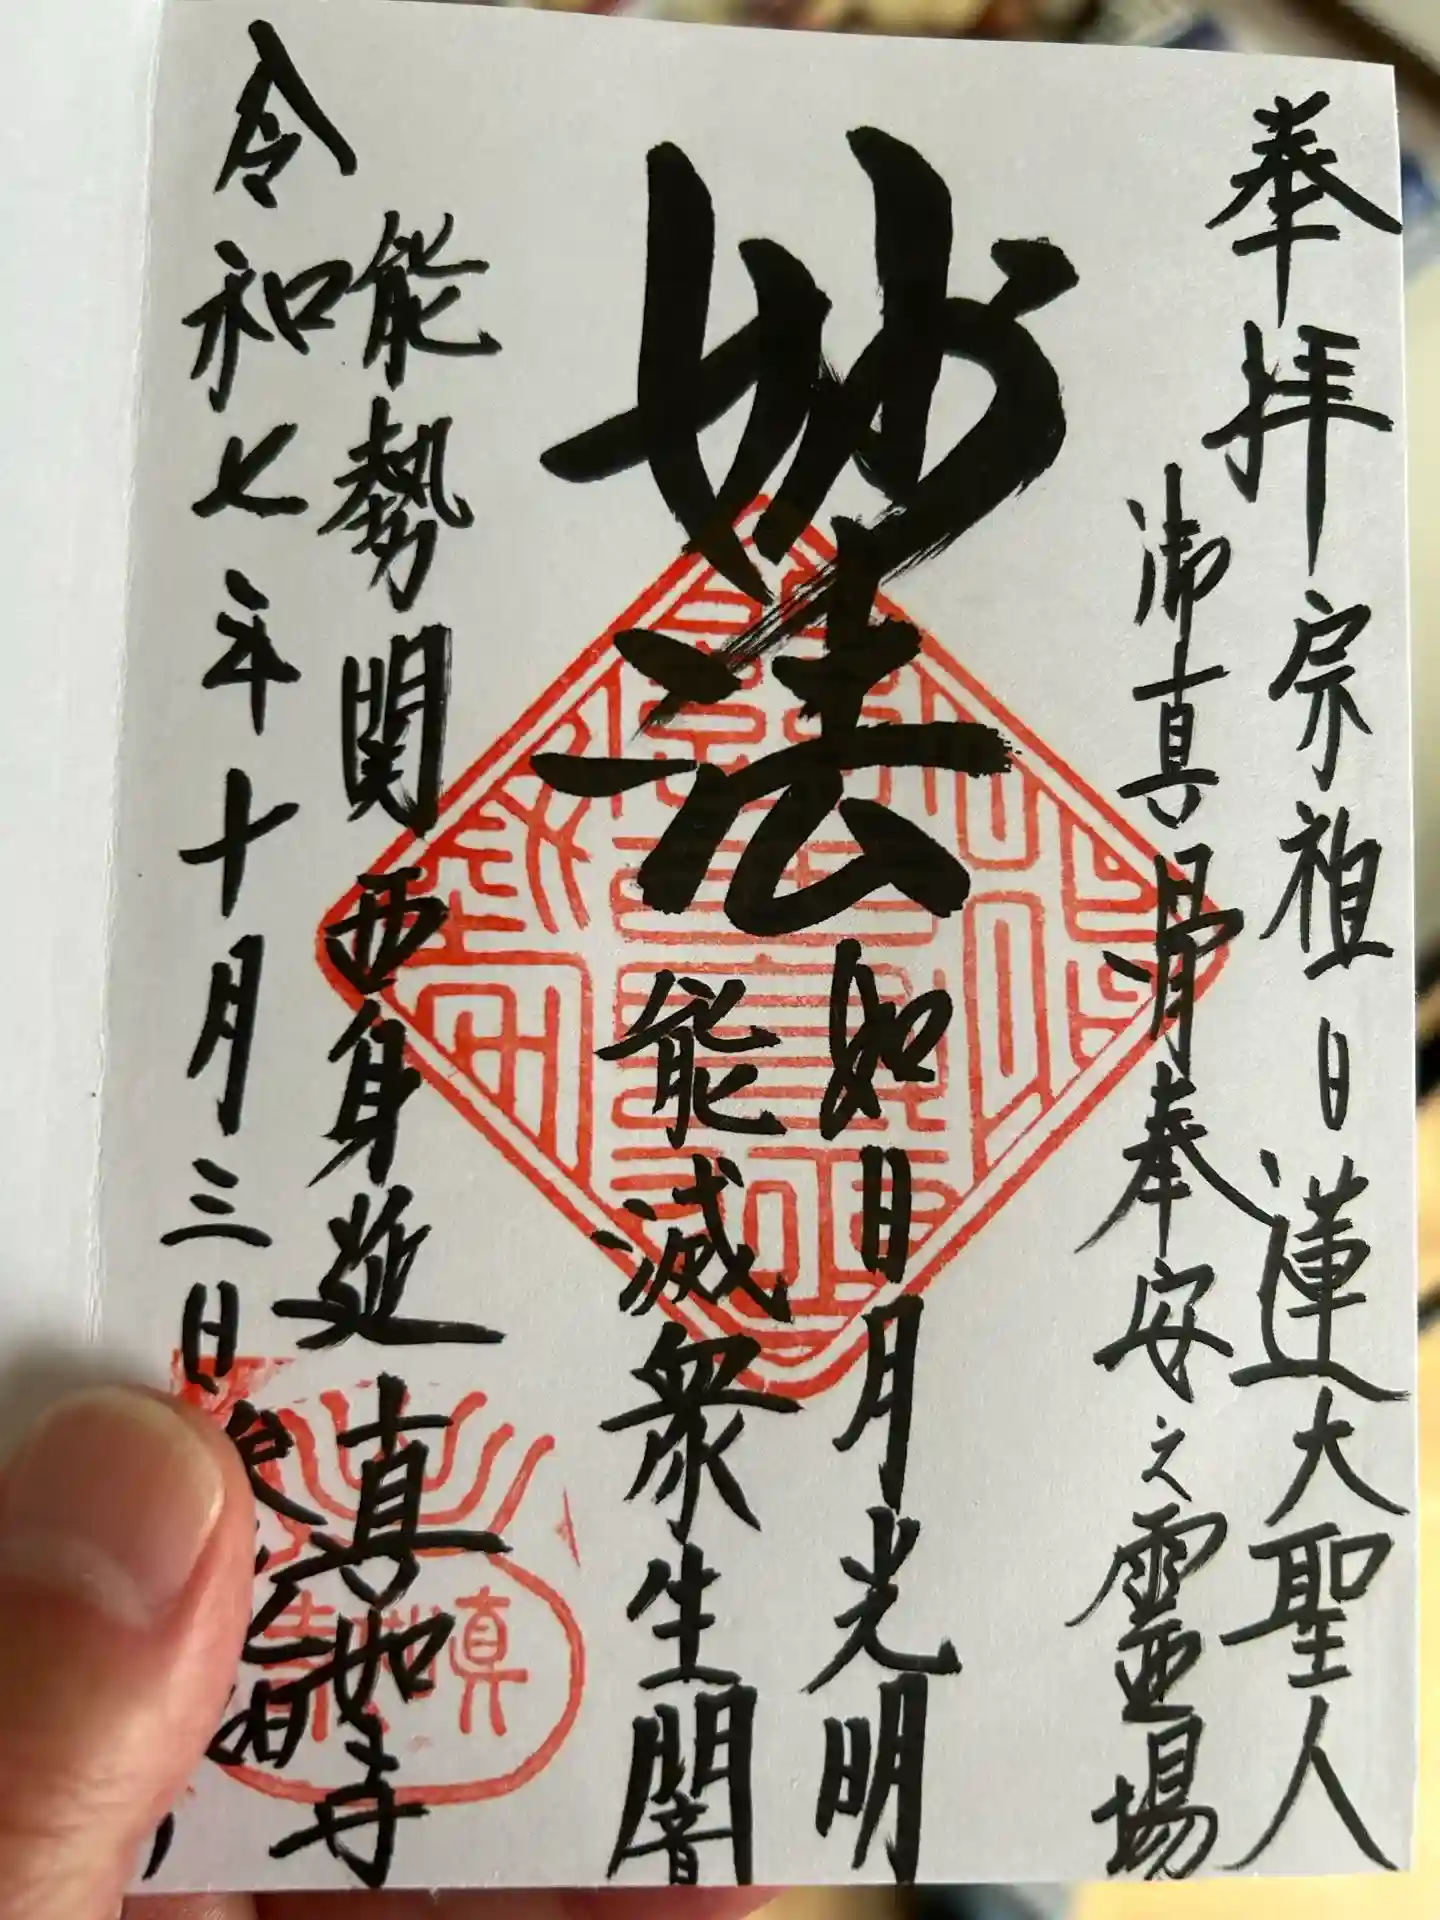 奉拝
宗祖日蓮大聖人
御真骨奉安之霊場
妙法
如日月光明
能滅衆生闇
能勢関西身延
真如寺
令和七年十月三日
真如寺